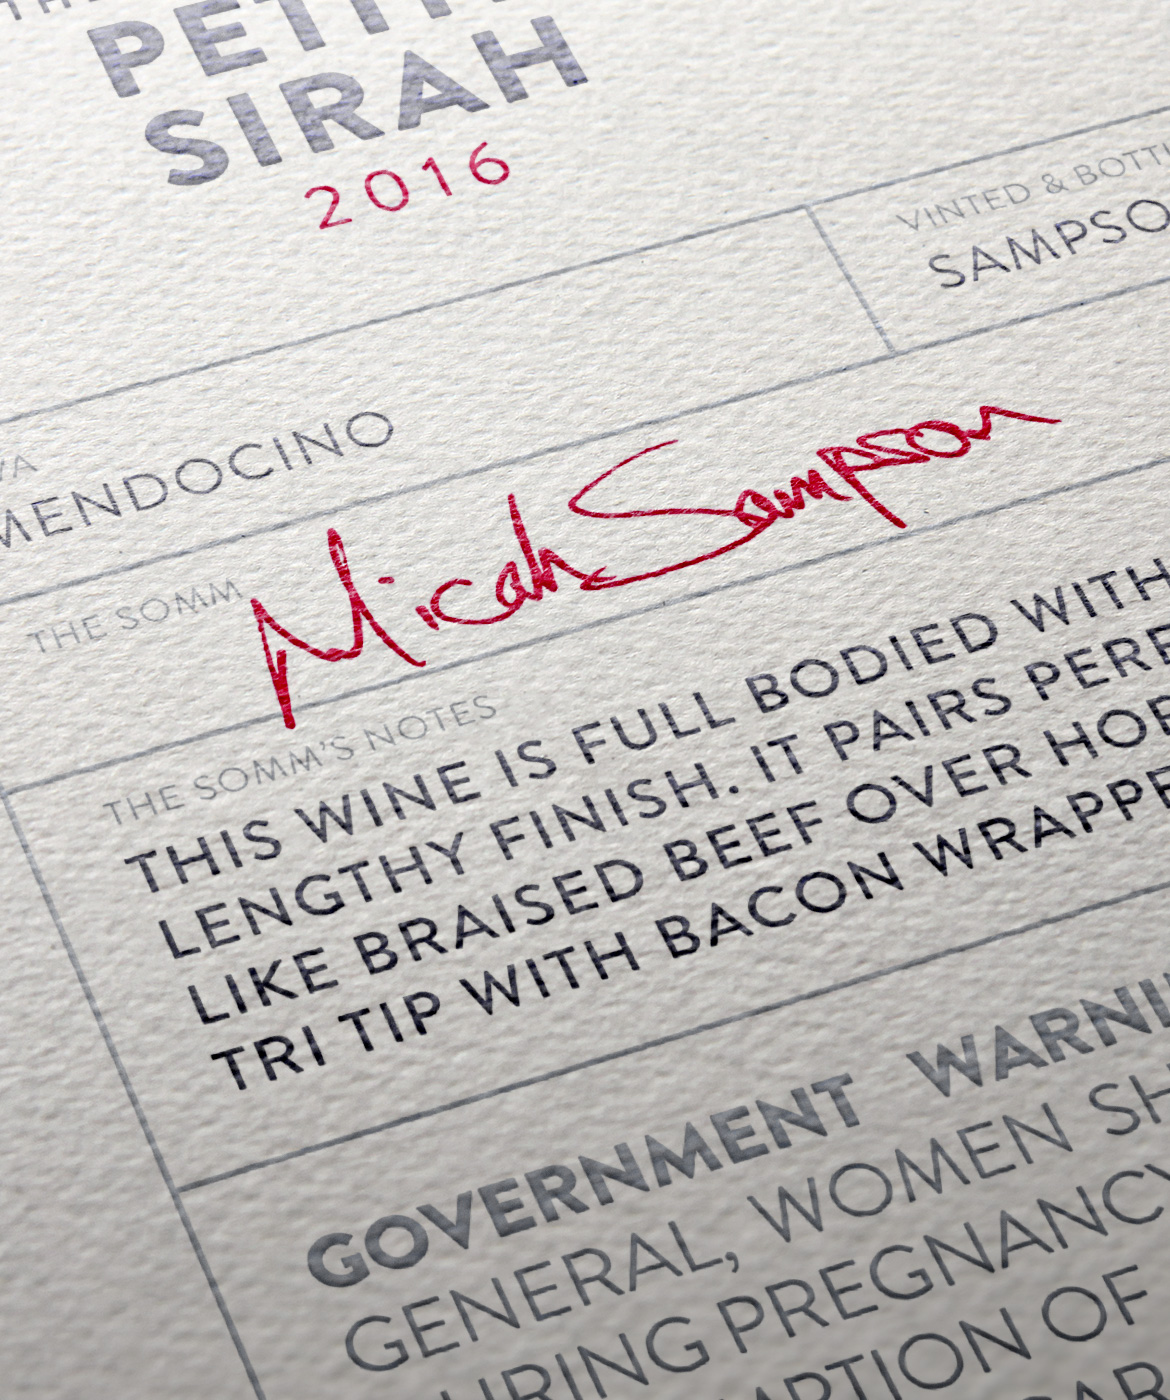 PETIT
SIRAH
2016
VINTED & BOTTL
SAMPSO
VA
MENDOCINO
THE SOMM
Micah Sampson
THE SOMM'S NOTES
THIS WINE IS FULL BODIED WITH
LENGTHY FINISH. IT PAIRS PERF
LIKE BRAISED BEEF OVER HOE
TRI TIP WITH BACON WRAPPE
GOVERNMENT WARNI
GENERAL, WOMEN SH
URING PREGNANCY
PTION OF